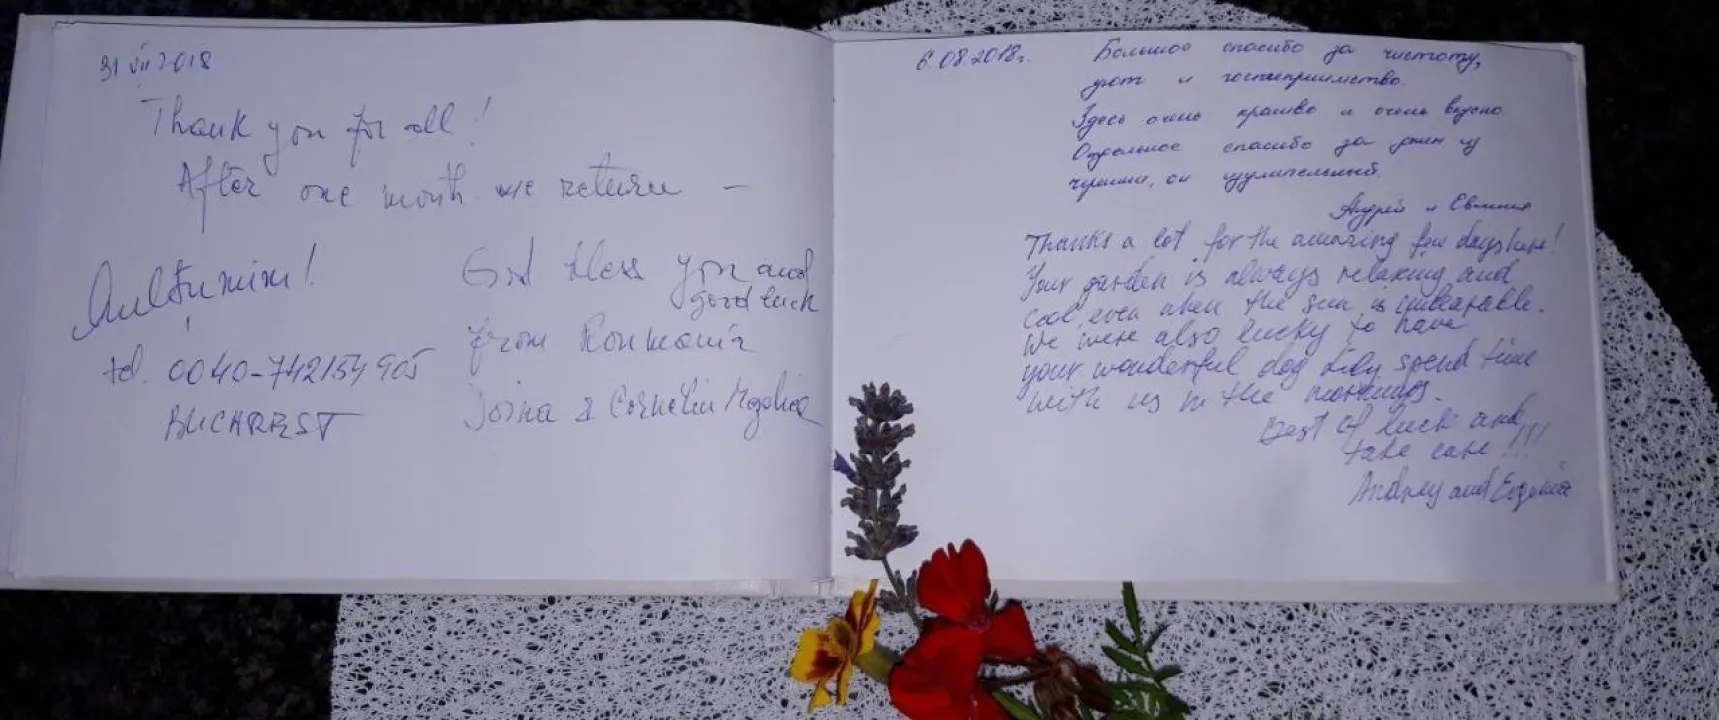 31 VII 2018
Thank you for all!
After one month we return —
Multumim!
God bless you and
good luck
from Roumania
tel. 0040-742154905
BUCHAREST
Cornelia
6.08.2018г.
Большое спасибо за чистоту,
уют и гостеприимство.
Здесь очень красиво и очень вкусно.
Отдельное спасибо за джем из
черешни, он изумительный.
Андрей и Евгения
Thanks a lot for the amazing few days here!
Your garden is always relaxing and
cool, even when the sun is unbearable.
We were also lucky to have
your wonderful dog Lily spend time
with us in the mornings.
Best of luck and
take care!!!
Andrey and Evgenia